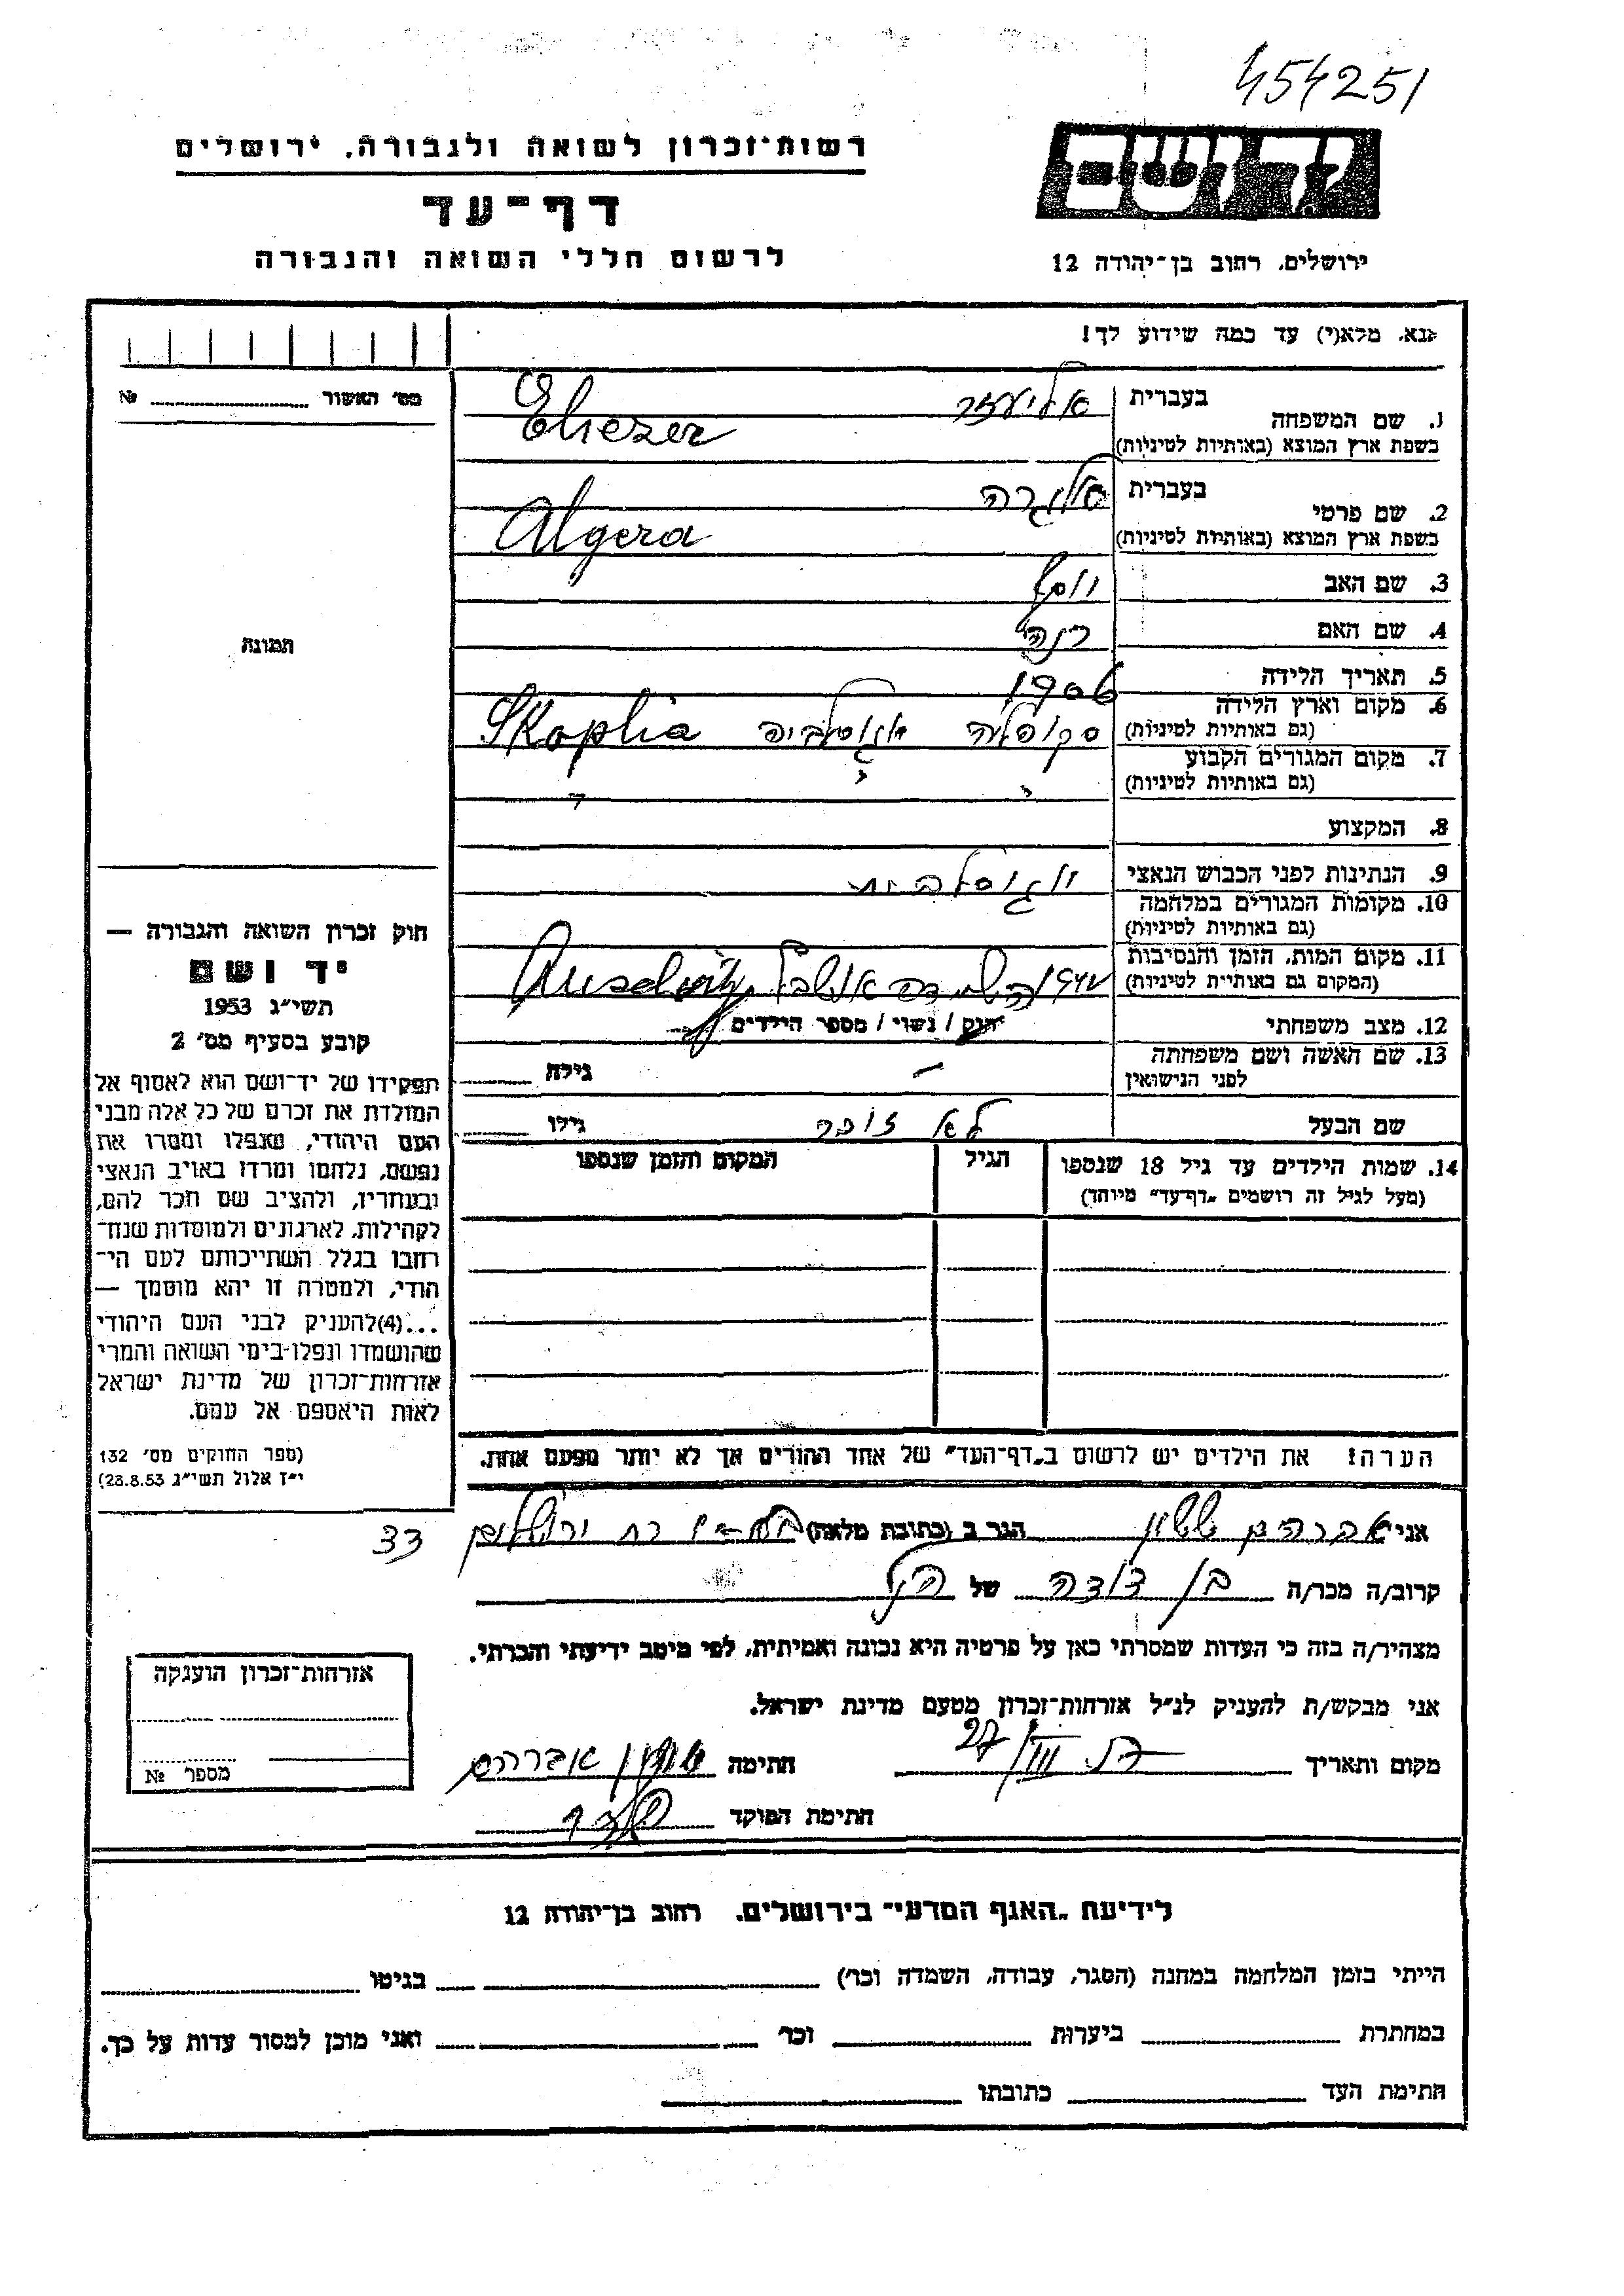 454251
יד ושם
רשות־זכרון לשואה ולגבורה, ירושלים
דף־עד
לרשום חללי השואה והגבורה
ירושלים, רחוב בן־יהודה 12
אנא, מלא(י) עד כמה שידוע לך!
מס׳ האשור № 
1. שם המשפחה בעברית אליעזר
בשפת ארץ המוצא (באותיות לטיניות) Eliezer
2. שם פרטי בעברית אלגרה
בשפת ארץ המוצא (באותיות לטיניות) Algera
3. שם האב יוסף
4. שם האם
5. תאריך הלידה 1906
6. מקום וארץ הלידה
(גם באותיות לטיניות) סקופליה יוגוסלביה Skoplia
7. מקום המגורים הקבוע
(גם באותיות לטיניות) " " "
8. המקצוע
9. הנתינות לפני הכבוש הנאצי יוגוסלבית
10. מקומות המגורים במלחמה
(גם באותיות לטיניות)
11. מקום המות, הזמן והנסיבות
(המקום גם באותיות לטיניות) Auschwitz
12. מצב משפחתי רווק / נשוי / מספר הילדים
13. שם האשה ושם משפחתה
לפני הנישואין — גילה
שם הבעל לא זוכר גילו
14. שמות הילדים עד גיל 18 שנספו הגיל המקום והזמן שנספו
(מעל לגיל זה רושמים „דף־עד" מיוחד)
הערה! את הילדים יש לרשום ב„דף־העד" של אחד ההורים אך לא יותר מפעם אחת.
תמונה
חוק זכרון השואה והגבורה —
יד ושם
תשי״ג 1953
קובע בסעיף מס׳ 2
תפקידו של יד־ושם הוא לאסוף אל
המולדת את זכרם של כל אלה מבני
העם היהודי, שנפלו ומסרו את
נפשם, נלחמו ומרדו באויב הנאצי
ובעוזריו, ולהציב שם וזכר להם,
לקהילות, לארגונים ולמוסדות שנח־
רבו בגלל השתייכותם לעם הי־
הודי, ולמטרה זו יהא מוסמך —
...(4) להעניק לבני העם היהודי
שהושמדו ונפלו בימי השואה והמרי
אזרחות־זכרון של מדינת ישראל
לאות היאספם אל עמם.
(ספר החוקים מס׳ 132
י״ז אלול תשי״ג 28.8.53)
אני אברהם ששון הגר ב (כתובת מלאה) רח ירושלים 33
קרוב/ה מכר/ה בן דודה של הנ"ל
מצהיר/ה בזה כי העדות שמסרתי כאן על פרטיה היא נכונה ואמיתית, לפי מיטב ידיעתי והכרתי.
אני מבקש/ת להעניק לנ״ל אזרחות־זכרון מטעם מדינת ישראל.
מקום ותאריך 27/III חתימה ששון אברהם
חתימת הפוקד
אזרחות־זכרון הוענקה
מספר №
לידיעת „האגף המדעי" בירושלים, רחוב בן־יהודה 12
הייתי בזמן המלחמה במחנה (הסגר, עבודה, השמדה וכו׳) בגיטו
במחתרת ביערות וכו׳ ואני מוכן למסור עדות על כך.
חתימת העד כתובתו